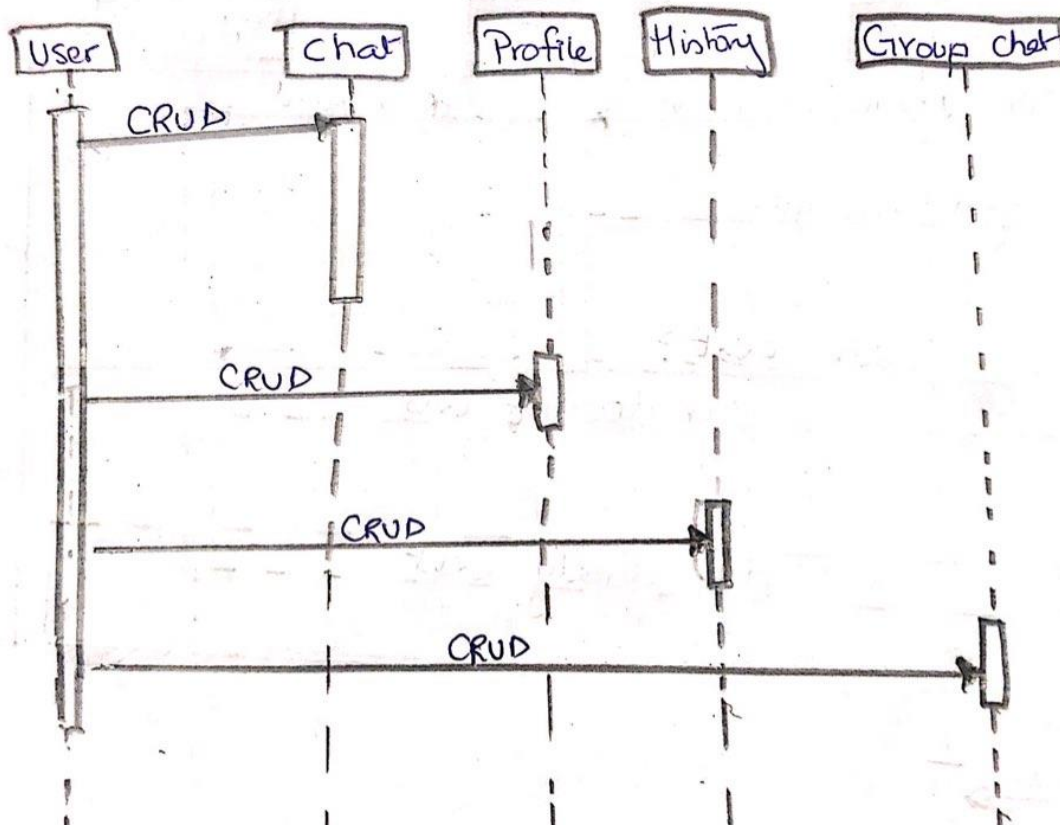 User
Chat
Profile
History
Group chat
CRUD
CRUD
CRUD
CRUD